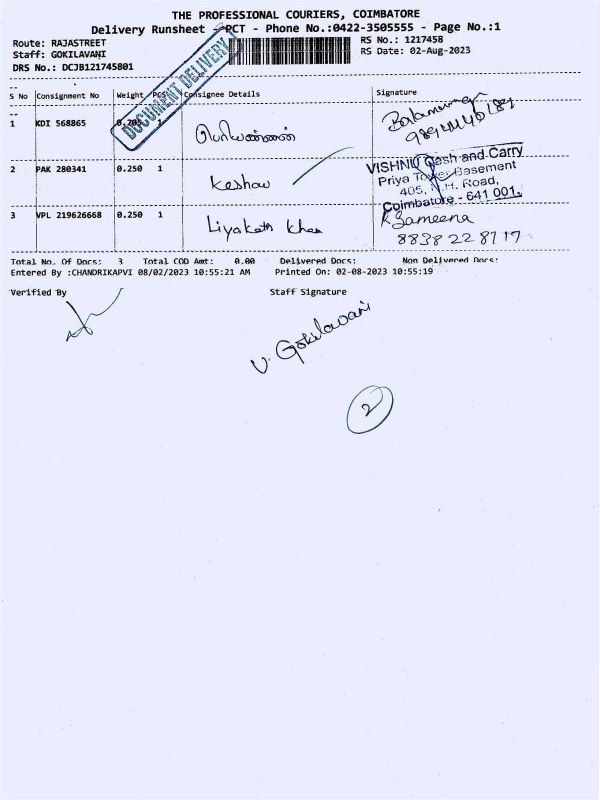 THE PROFESSIONAL COURIERS, COIMBATORE
Delivery Runsheet - PCT - Phone No.:0422-3505555 - Page No.:1
Route: RAJASTREET
RS No.: 1217458
Staff: GOKILAVANI
RS Date: 02-Aug-2023
DRS No.: DCJB121745801
DOCUMENT DELIVERY
S No Consignment No Weight PCS Consignee Details Signature
1 KDI 568865 0.205 1 பெரியண்ணன் Balamurugan
2 PAK 280341 0.250 1 Keshav
VISHNU Cash and Carry
Priya Tower Basement
405, N.H. Road,
Coimbatore - 641 001.
3 VPL 219626668 0.250 1 Liyakath Khan K Sameena
8838228717
Total No. Of Docs: 3 Total COD Amt: 0.00 Delivered Docs: Non Delivered Docs:
Entered By :CHANDRIKAPVI 08/02/2023 10:55:21 AM Printed On: 02-08-2023 10:55:19
Verified By Staff Signature
V. Gokilavani
2